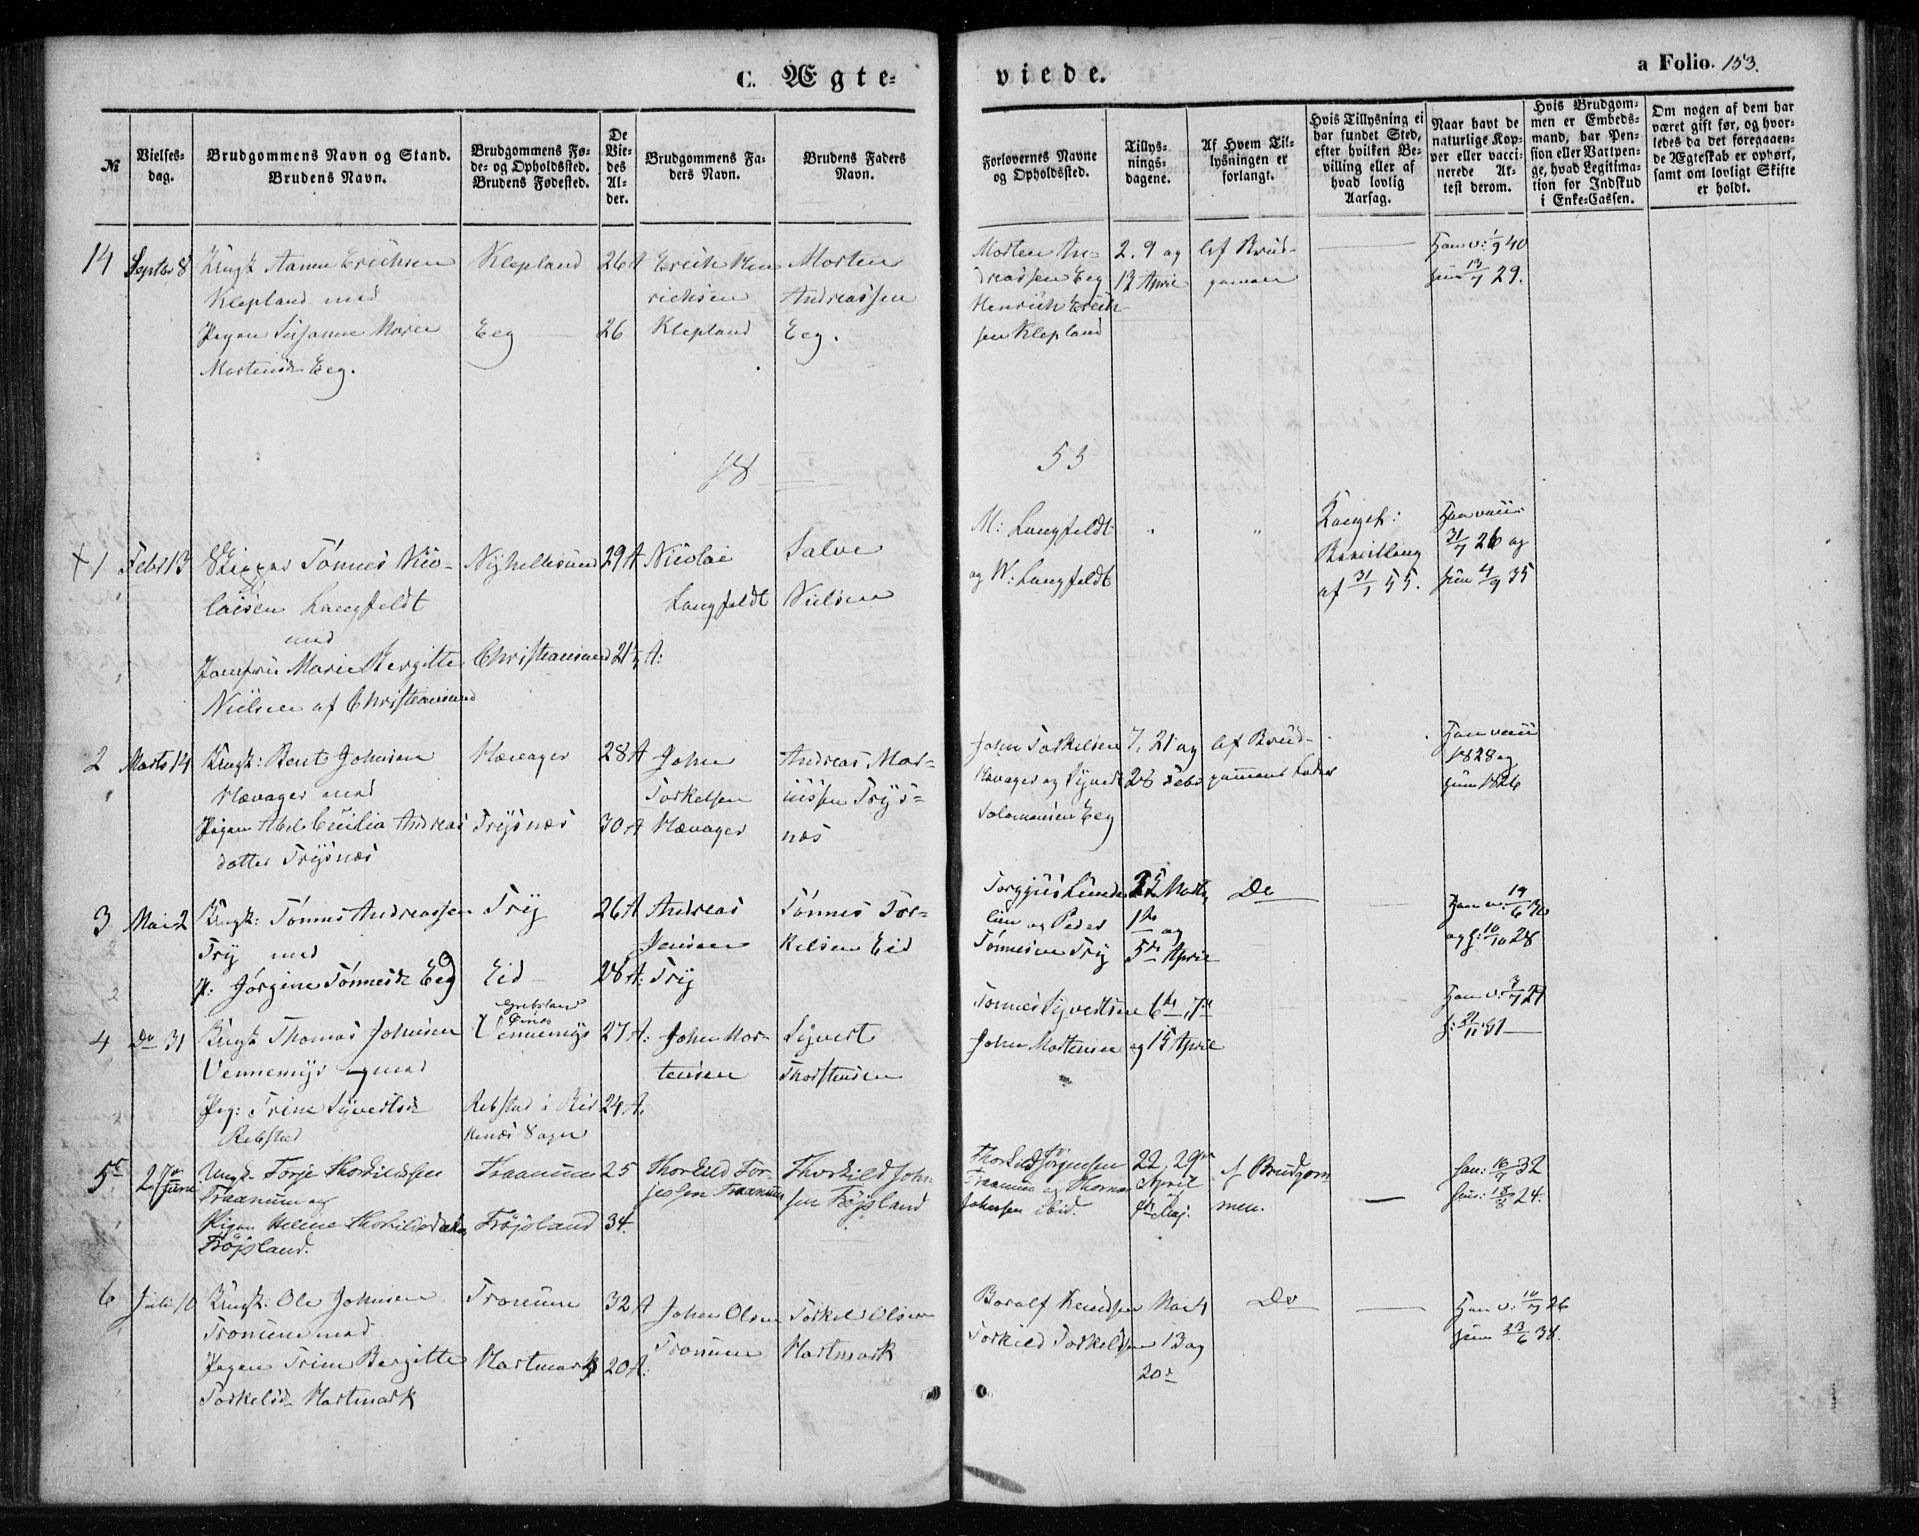 C. Ægte-
viede.
a Folio. 153.
№
Vielses-
dag.
Brudgommens Navn og Stand.
Brudens Navn.
Brudgommens Fø-
de- og Opholdssted.
Brudens Fødested.
De
Vie-
des
Al-
der.
Brudgommens Fa-
ders Navn.
Brudens Faders
Navn.
Forlovernes Navne
og Opholdssted.
Tillys-
nings-
dagene.
Af Hvem Til-
lysningen er
forlangt.
Hvis Tillysning ei
har fundet Sted,
efter hvilken Be-
villing eller af
hvad lovlig
Aarsag.
Naar havt de
naturlige Kop-
per eller vacci-
nerede At-
test derom.
Hvis Brudgom-
men er Embeds-
mand, har Pen-
sion eller Vartpen-
ge, hvad Legitima-
tion for Indskud
i Enke-Cassen.
Om nogen af dem har
været gift før, og hvor-
ledes da det foregaaen-
de Ægteskab er ophørt,
samt om lovligt Skifte
er holdt.
14
Septbr 8
Ungk Aanen Erichsen
Klepland med
Pigen Susanne Marie
Mortensd Eeg.
Klepland
Eeg
26 A
26
Erich Hen
richsen
Klepland
Morten
Andreassen
Eeg.
Morten An-
dreassen Eeg
Henrich Erich-
sen Klepland
2. 9 og
12 April
Af Brud-
gomen
Ham v: 1/9 40
hun 13/7 29.
18
55
+ 1
Febr 13
Tønnes Nico-
laisen Langfeldt
med
Jomfru Marie Bergitte
Nielsen af Christiansand
Ny Hellesund
Christiansand
29 A
21 ½ A:
Nicolai
Langfeldt
Salve
Nielsen
M: Langfeldt
og W: Langfeldt
Kongel:
Bevilling
af 31/1 55.
Ham vacc:
31/7 26 og
hun 4/9 35
2
Marts 14
Ungk: Bent Johnsen
Hævager med
Pigen Abel Cecilia Andreas
datter Trysnæs
Hævager
Trysnæs
28 A
30 A
John
Torkelsen
Hævager
Andreas Mar-
iussen Trys-
næs
John Torkelsen
Hævager og Syvert
Salomonsen Eeg
7, 21 og
28 Febr
Af Brud-
gommens Fader
Ham vacc
1828 og
hun 1826
3
Mai 2
Ungk: Tønnes Andreassen
Try med
P: Jørgine Tønnesd Eeg
Try
Eid
26 A
28 A:
Andreas
Jensen
Try
Tønnes Tor-
kelsen Eid
Torgjus Lunde
lien og Peder
Tønnesen Try
25 Marts
1ste og
5te April
Do
Ham v: 19/6 30
og h: 10/10 28
4
Do 31
Ungk Thomas Johnsen
Vennemyr med
Pig: Trine Syvertsd
Rebstad
Vennemyr
Rebstad i Bir
kenæs Sogn
27 A:
24 A.
John Mor-
tensen
Syvert
Thorstensen
Tønnes Syvertsen
John Mortensen
6te, 7de
og 15 April
Ham v: 3/7 29
h: 21/11 31
5
27de Juni
Ungk. Torje Thorkildsen
Traanum og
Pigen Helene Thorkildsdatter
Frøjsland.
Traanum
Frøjsland
25
34.
Thorkild Tor-
jessen Traanum
Thorkild John
sen Frøjsland
Thorkild Jørgensen
Traanum og Thomas
Johnsen ibid.
22, 29de
April
og
Maj.
af Brudgom
men.
ham: 16/9 32
hun: 18/8 24.
6
Juli 10
Ungk: Ole Johnsen
Tronum med
Pigen Trine Bergitte
Torkelsd. Hartmark
Tronum
Hartmark
32 A
20 A:
John Olsen
Tronum
Torkel Olsen
Hartmark
Boralf Knudsen
Torkild Torkelsen
Mai 4
13 og
20de
Do
Ham v: 10/7 26
hun 23/6 38.